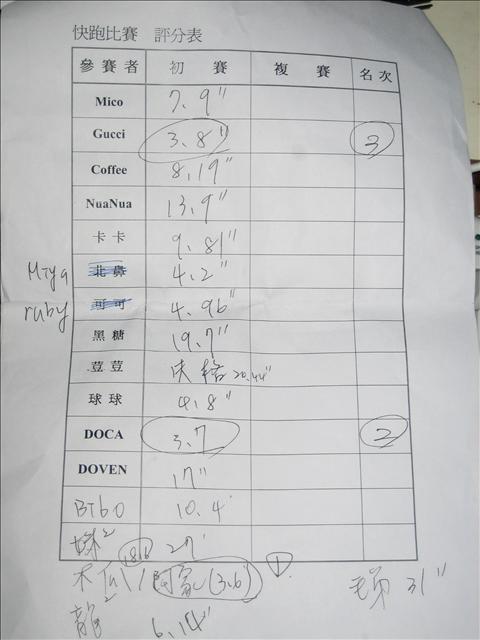 快跑比賽 評分表
參賽者 初賽 複賽 名次
Mico 7.9"
Gucci 3.8" 3
Coffee 8.19"
NuaNua 13.9"
卡卡 9.81"
Miya 北鼻 4.2"
ruby 可可 4.96"
黑糖 19.7"
荳荳 失格 20.44"
球球 4.8"
DOCA 3.7 2
DOVEN 17"
10.4
妹² 27"
木瓜 (3.6) 1
31"
龍² 6.14"